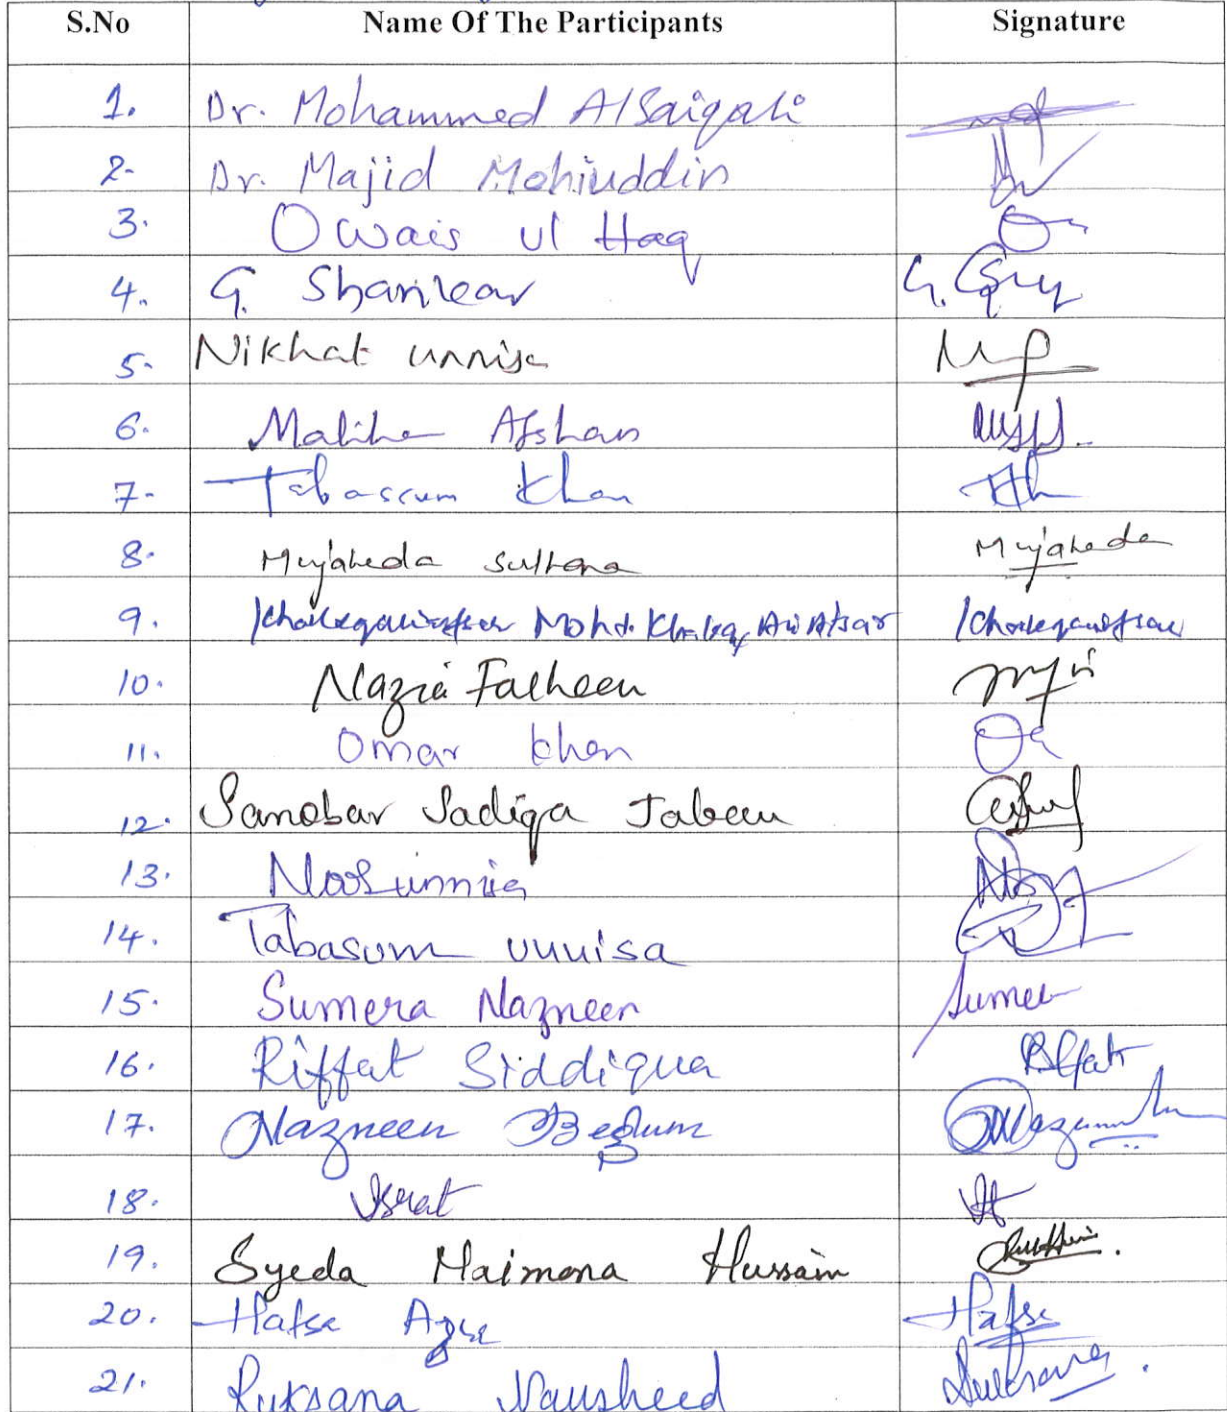 S.No Name Of The Participants Signature
1. Dr. Mohammed AlSaigali
2. Dr. Majid Mohiuddin
3. Owais ul Haq
4. G. Shankar G.
5. Nikhat unnisa
6. Maliha Afshan
7. Tabassum Khan
8. Mujaheda Sultana Mujaheda
9. Mohd. Khaleeq
10. Nazia Fatheen
11. Omar Khan
12. Sanobar Sadiqa Jabeen
13. Noorunnisa
14. Tabasum unnisa
15. Sumera Nazneen Sumera
16. Riffat Siddiqua Riffat
17. Nazneen Begum
18. Israt
19. Syeda Maimona Hussain
20. Hafsa Hafsa
21. Ruksana Nausheed Ruksana